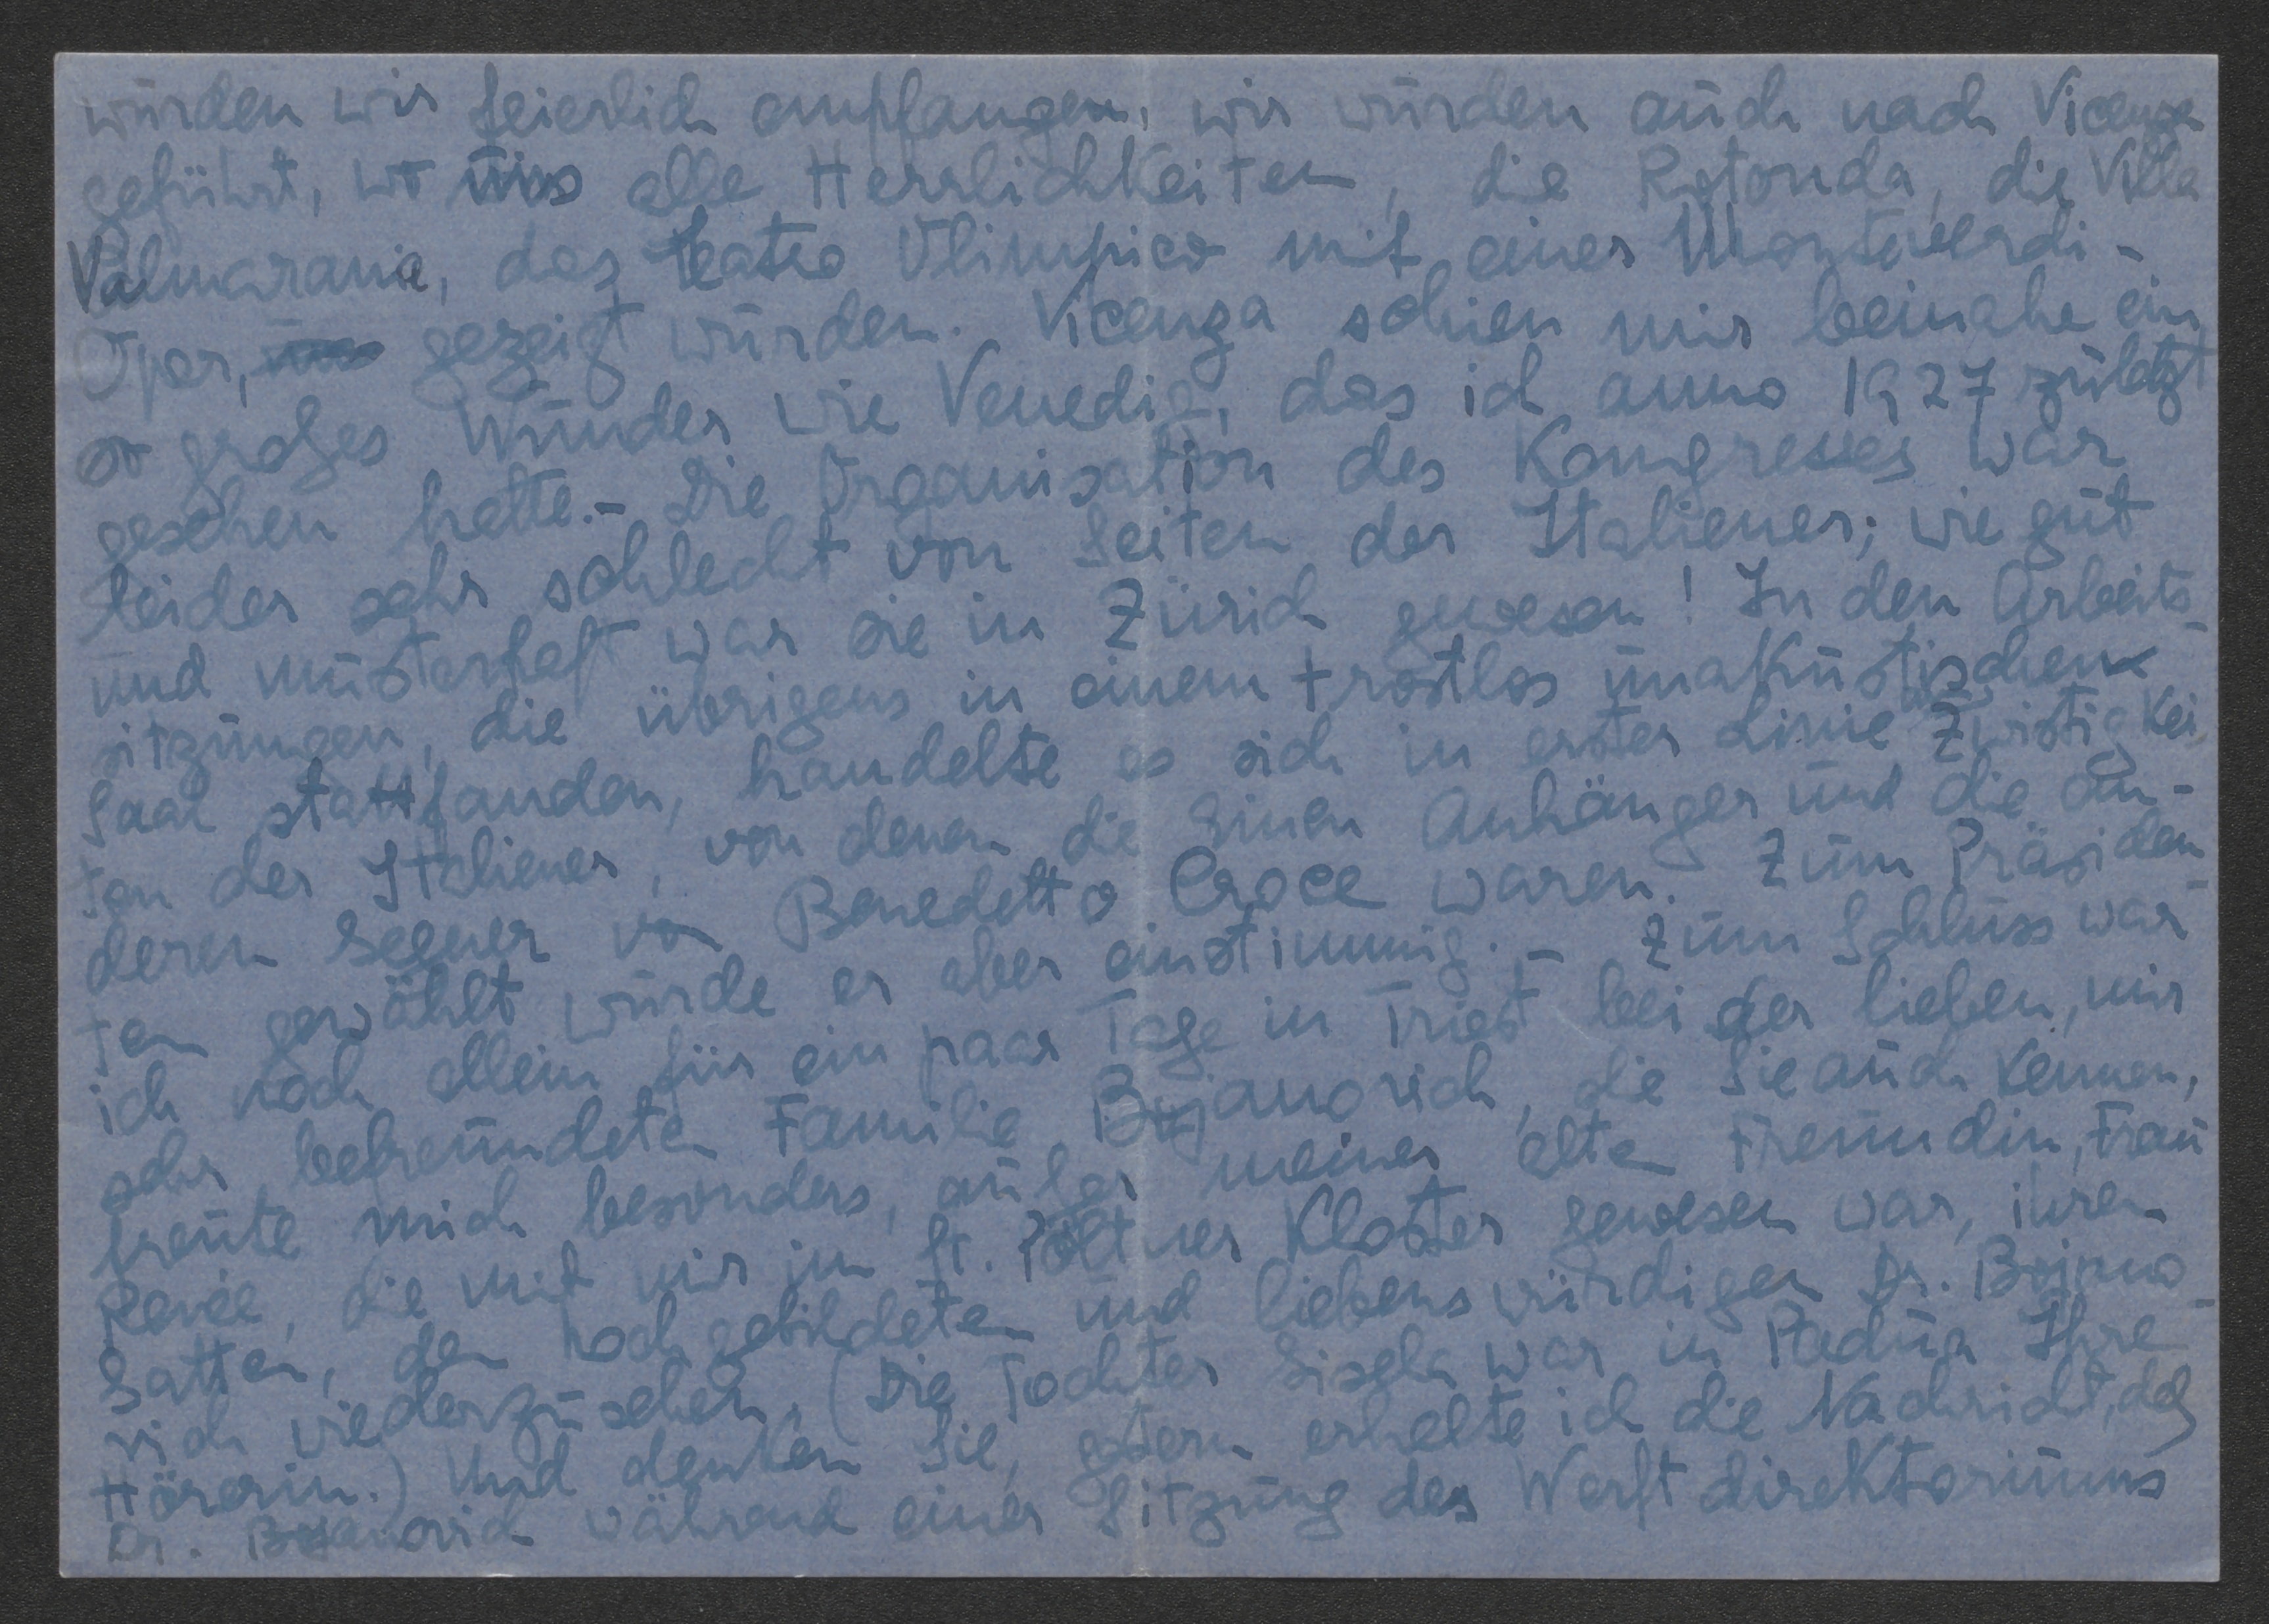 wurden wir feierlich empfangen, wir wurden auch nach Vicenza
geführt, wo uns alle Herrlichkeiten, die Rotonda, die Villa
Valmarana, das Teatro Olimpico mit einer Monteverdi-
Oper, gezeigt wurden. Vicenza schien mir beinahe ein
so großes Wunder wie Venedig, das ich anno 1927 zuletzt
gesehen hatte.- Die Organisation des Kongresses war
leider sehr schlecht von Seiten der Italiener; wie gut
und musterhaft war sie in Zürich gewesen! In den Arbeits-
sitzungen, die übrigens in einem trostlos unakustischen
Saal stattfanden, handelte es sich in erster Linie um Zwistigkei-
ten der Italiener, von denen die Einen Anhänger und die an-
deren Gegner von Benedetto Croce waren. Zum Präsiden-
ten gewählt wurde er aber einstimmig.- Zum Schluss war
ich noch allein für ein paar Tage in Triest bei der lieben, mir
sehr befreundeten Familie Bojanovich, die Sie auch kennen,
freute mich besonders, außer meiner alten Freundin, Frau
Renée, die mit mir im St. Pöltner Kloster gewesen war, ihren
Gatten, den hochgebildeten und liebenswürdigen Dr. Bojano-
vich wiederzusehen. (Die Tochter Gisela war in Padua Ihre
Hörerin.) Und denken Sie, gestern erhielte ich die Nachricht, daß
Dr. Bojanovich während einer Sitzung des Werftdirektoriums